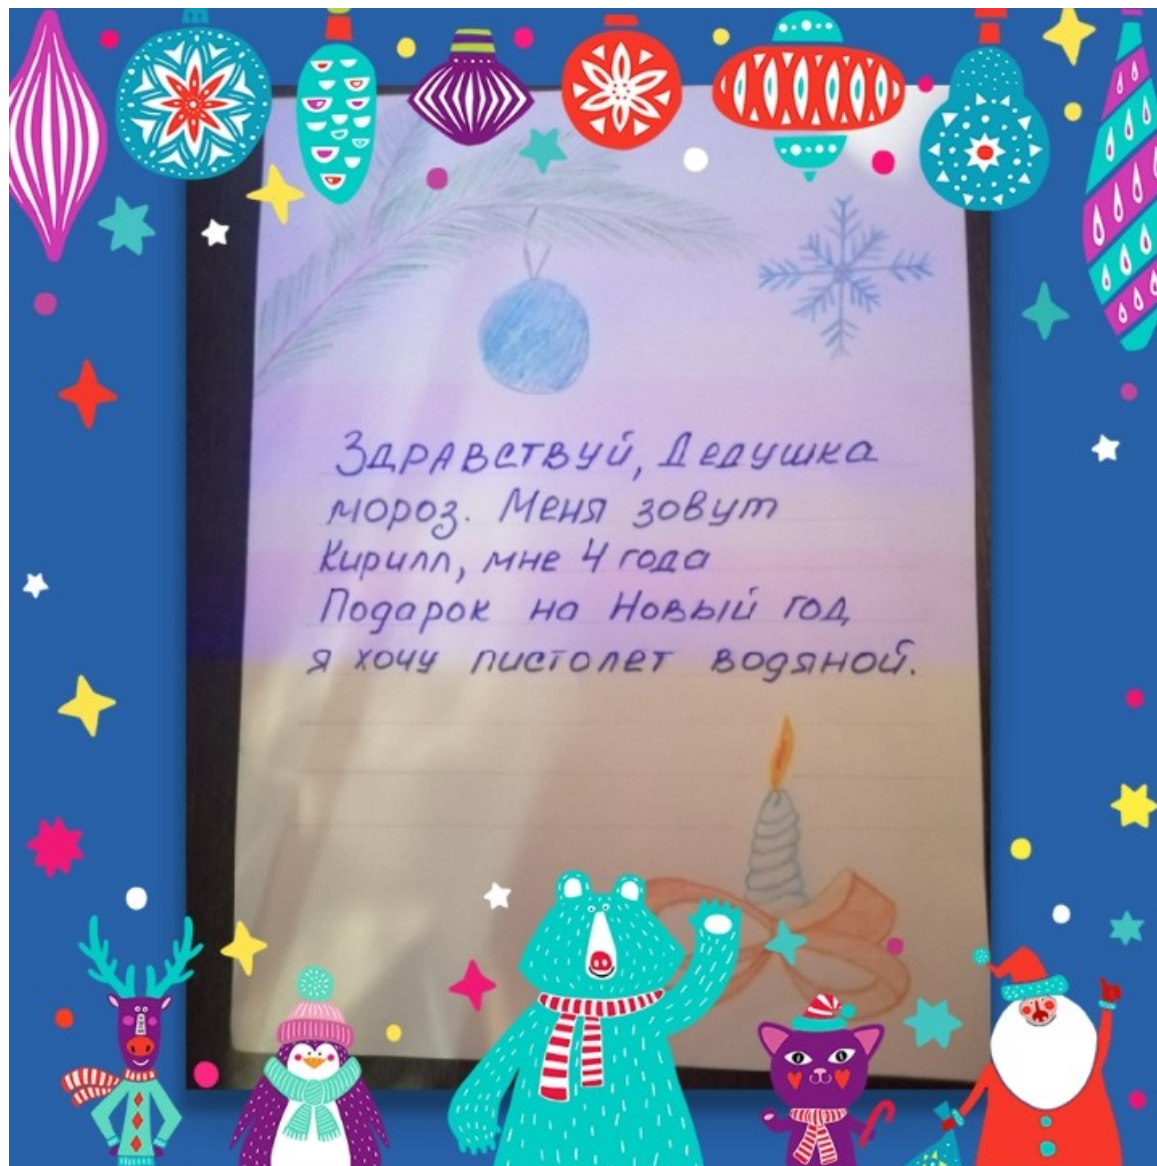 Здравствуй, Дедушка
мороз. Меня зовут
Кирилл, мне 4 года
Подарок на Новый год
я хочу пистолет водяной.